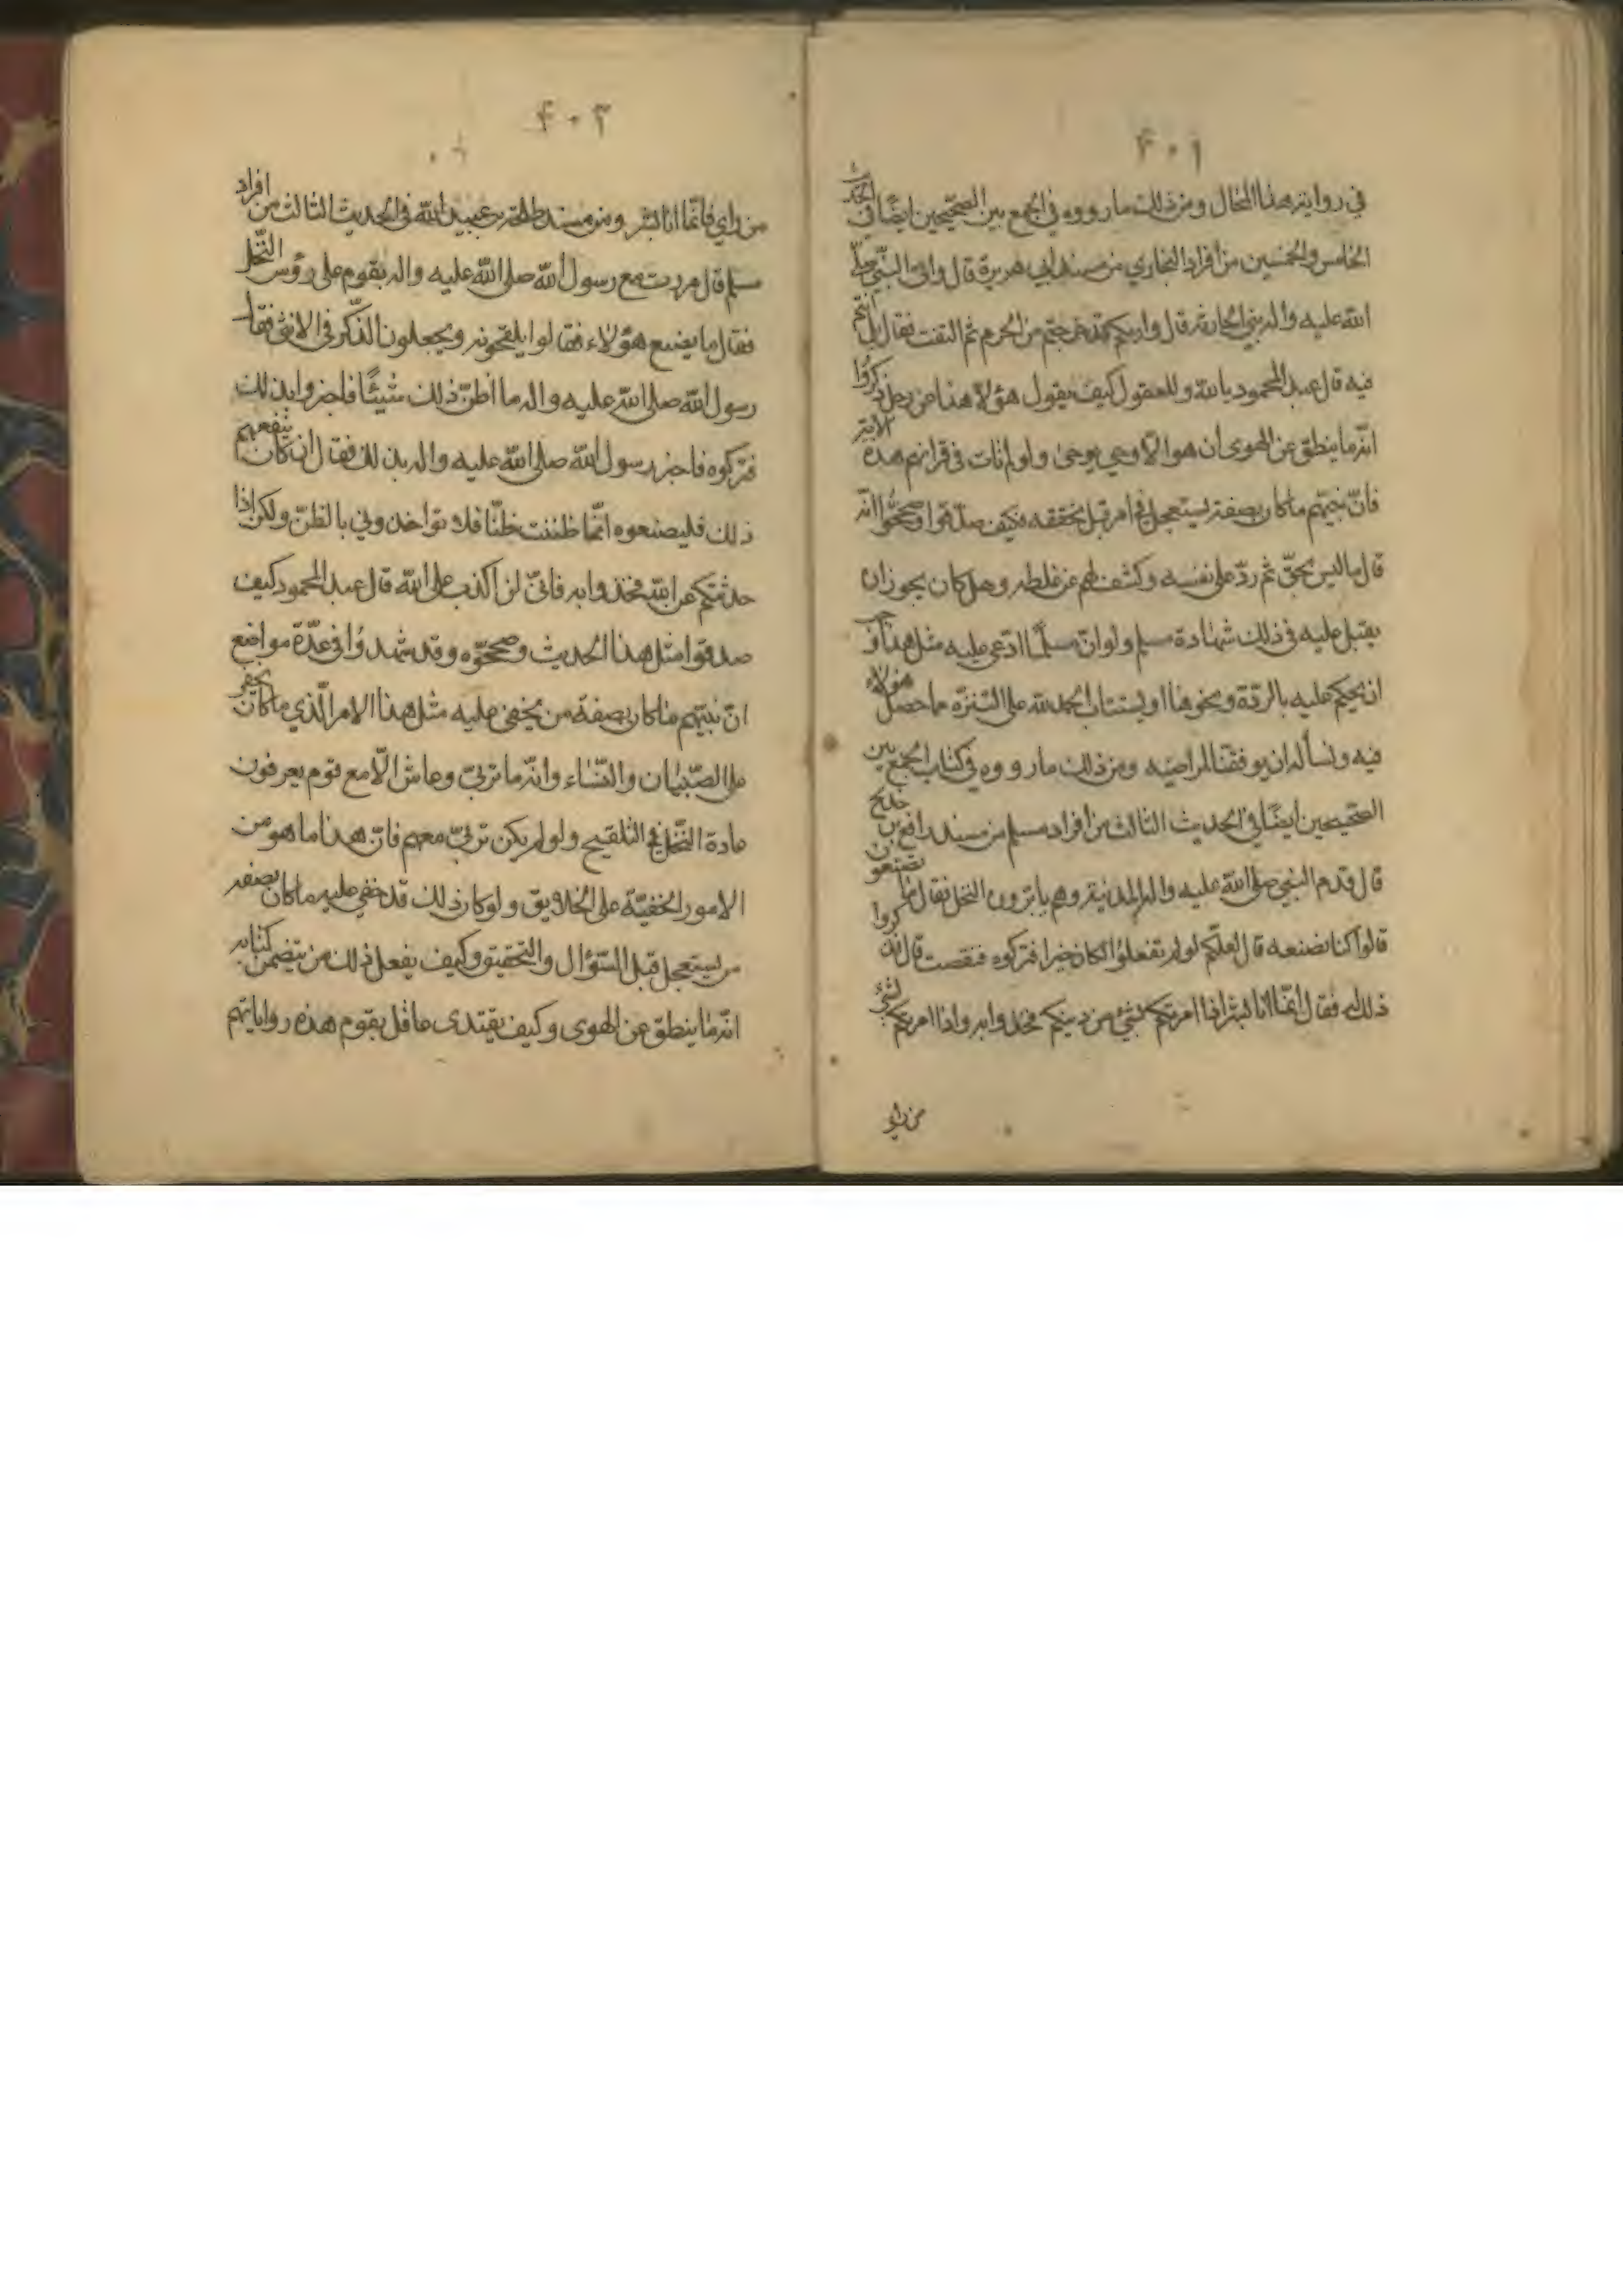 ۴۰۱
في روايته هذا المحال ومن ذلك ما رووه في الجمع بين الصحيحين ايضًا في الحديث
الخامس والخمسين من أفراد البخاري من مسند ابي هريرة قال واتى النبي صلى
الله عليه واله بني الحارثة قال واريكم قد خرجتم من الحرم ثم التفت فقال بل انتم
فيه قال عبد المحمود يا لله وللعقول كيف يقول هؤلاء هذا عن رجل ذكروا
انه ما ينطق عن الهوى ان هو الّا وحي يوحى ولو لم تات في قرانهم هذه الاية
فانّ نبيّهم ما كان بصفة يستعجل في امر قبل تحققه فكيف صدقوا وصححوا انه
قال ما ليس بحقّ ثم ردّ على نفسه وكشف لهم عن غلطه وهل كان يجوز ان
يقبل عليه في ذلك شهادة مسلم ولو انّ مسلمًا ادّعى عليه مثل هذا وجب
ان يحكم عليه بالردّة ونحوها او يستتاب الحمد لله على التنزّه مما حصل هؤلاء
فيه ونسأله ان يوفقنا لمراضيه ومن ذلك ما رووه في كتاب الجمع بين
الصحيحين ايضًا في الحديث الثالث من افراد مسلم من مسند رافع بن خديج
قال قدم النبي صلى الله عليه واله المدينة وهم يابرون النخل فقال ما تصنعون
قالوا كنا نصنعه قال لعلّكم لو لم تفعلوا لكان خيرا فتركوه فنقصت قال فذكروا
ذلك له فقال انّما انا بشر اذا امرتكم بشيء من دينكم فخذوا به واذا امرتكم بشيء
من رايي
۴۰۲
من راي فانّما انا بشر ومن مسند طلحة بن عبيد الله في الحديث الثالث من افراد
مسلم قال مررت مع رسول الله صلى الله عليه واله بقوم على رؤس النّخل
فقال ما يصنع هؤلاء فقالوا يلقحونه ويجعلون الذّكر في الانثى فقال
رسول الله صلى الله عليه واله ما اظنّ ذلك شيئًا فاخبروا بذلك
فتركوه فاخبر رسول الله صلى الله عليه واله بذلك فقال ان كان ينفعهم
ذلك فليصنعوه انّما ظننت ظنّا فلا تواخذوني بالظنّ ولكن اذا
حدثتكم عن الله فخذوا به فانّي لن اكذب على الله قال عبد المحمود كيف
صدقوا مثل هذا الحديث وصححّوه وقد شهدوا في عدّة مواضع
انّ نبيّهم ما كان بصفة من يخفى عليه مثل هذا الامر الّذي ما كان يخفى
على الصّبيان والنّساء وانّه ما تربّى وعاش الّا مع قوم يعرفون
عادة النّخل في التلقيح ولو لم يكن تربّى معهم فانّ هذا ما هو من
الامور الخفيّة على الخلايق ولو كان ذلك قد خفي عليه ما كان بصفه
من يستعجل قبل السّؤال والتحقيق وكيف يفعل ذلك من تضمن كتابه
انّه ما ينطق عن الهوى وكيف يقتدى عاقل بقوم هذه رواياتهم